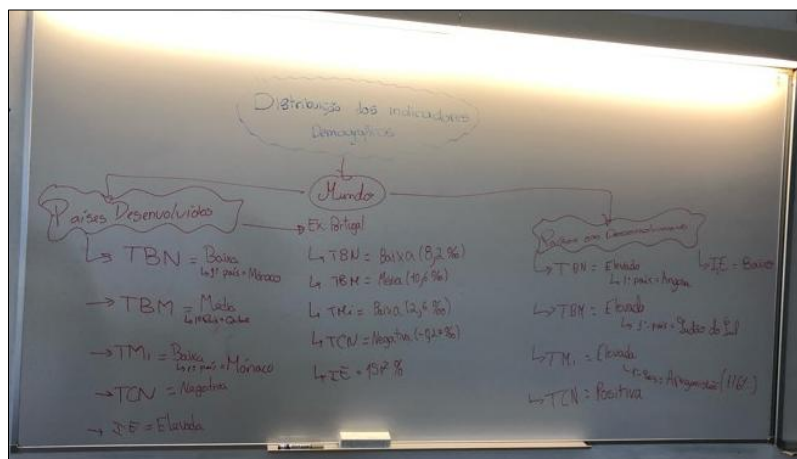 Distribuição dos indicadores
Demográficos
Mundo
Países Desenvolvidos
↳ TBN = Baixa
↳ 1º país = Mónaco
→ TBM = Média
→ TMi = Baixa
↳ 1º país = Mónaco
→ TCN = Negativa
→ IE = Elevada
→ Ex. Portugal
↳ TBN = Baixa (8,2 ‰)
↳ TBM = Média (10,6 ‰)
↳ TMi = Baixa (2,6 ‰)
↳ TCN = Negativa
↳ IE =
Países em Desenvolvimento
↳ TBN = Elevada
↳ 1º país = Angola
↳ TBM = Elevada
↳ 1º país = Sudão do Sul
↳ TMi = Elevada
↳ TCN = Positiva
↳ IE = Baixo